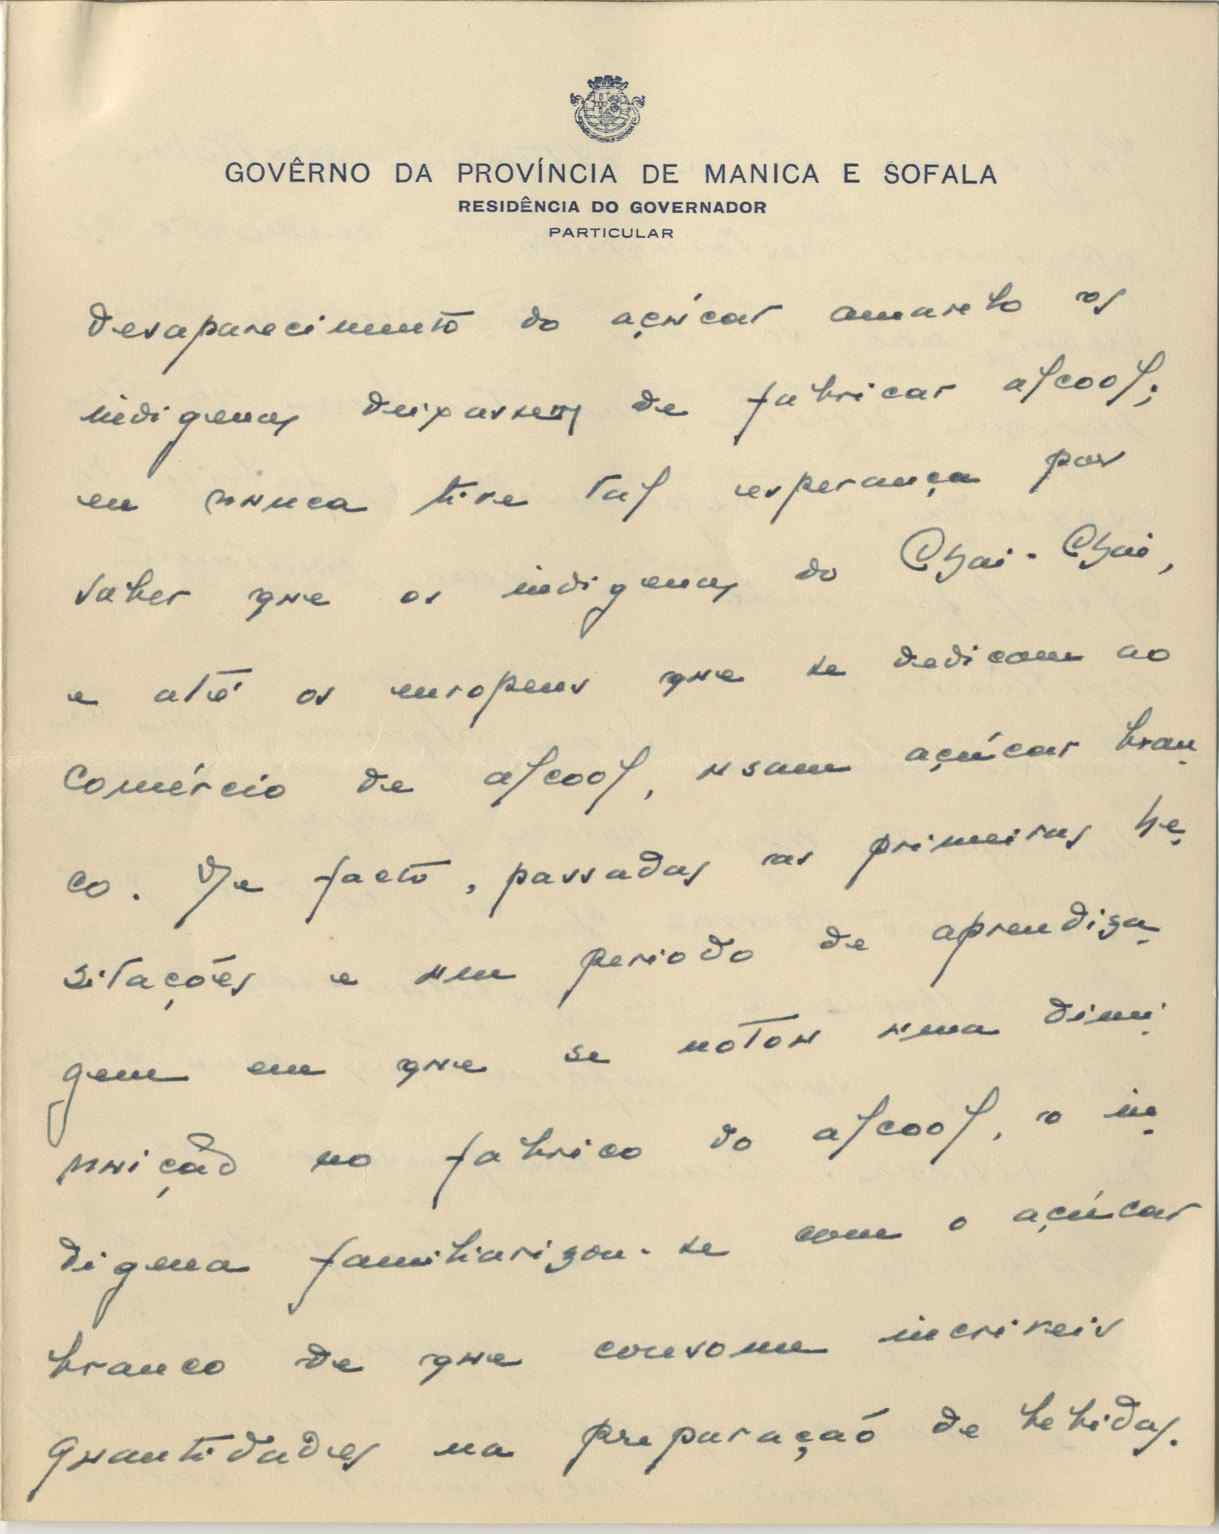 GOVÊRNO DA PROVÍNCIA DE MANICA E SOFALA
RESIDÊNCIA DO GOVERNADOR
PARTICULAR
desaparecimento do açúcar amarelo os
indigenas deixassem de fabricar alcool;
eu nunca tive tal esperança por
saber que os indigenas do Chai-Chai,
e até os europeus que se dedicam ao
comércio de alcool, usam açúcar bran-
co. De facto, passadas as primeiras he-
sitações e um periodo de aprendiza-
gem em que se notou uma dimi-
nuição no fabrico do alcool, o in-
digena familiarizou-se com o açúcar
branco de que consome incriveis
quantidades na preparação de bebidas.